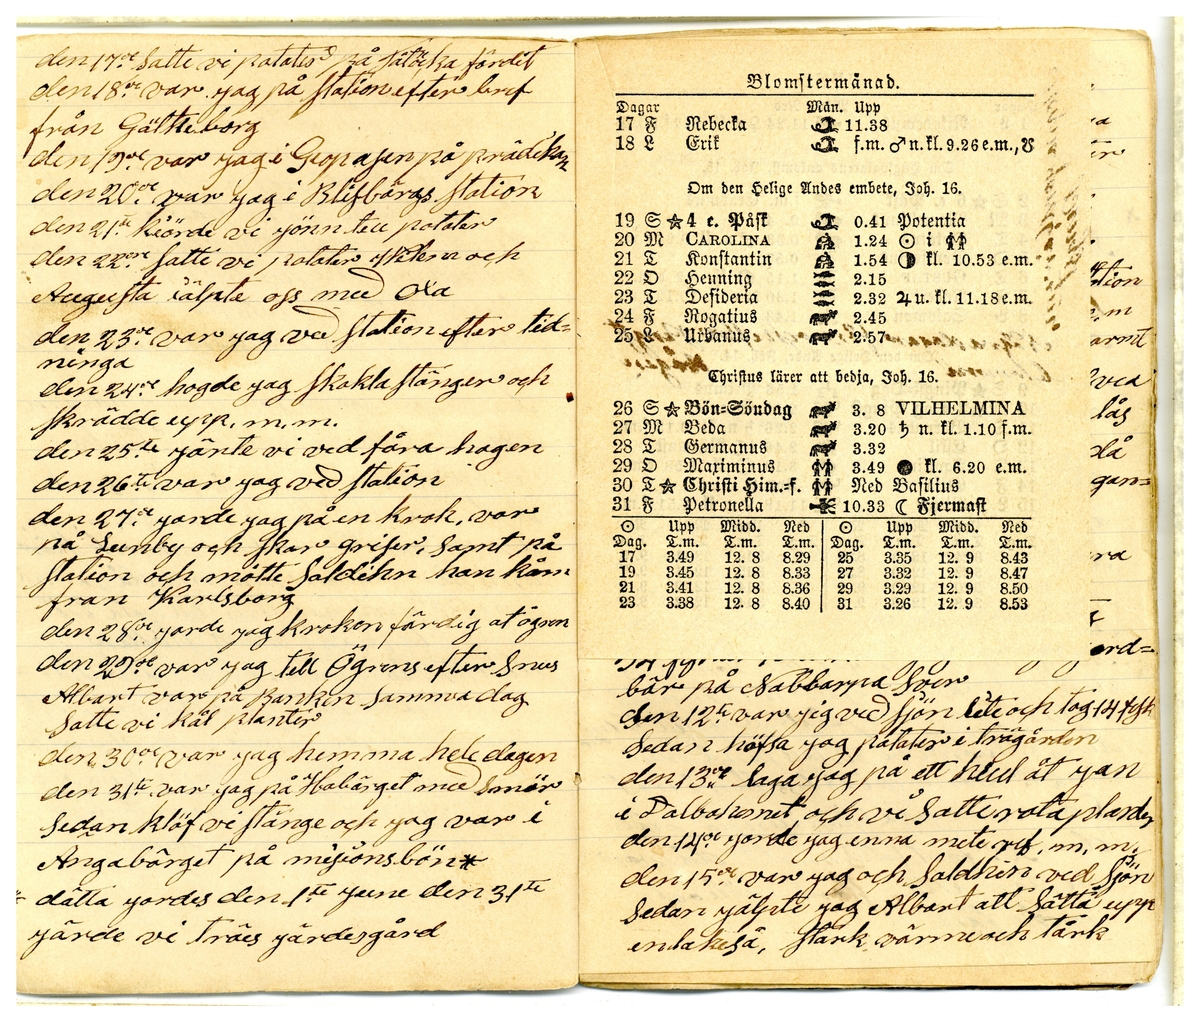 den 17de Satte vi potater på
den 18de var jag på Station efter bref
från Götheborg
den 19de var jag i på prädikan
den 20de var jag i Station
den 21te kiörde vi potater
den 22dre Satte vi potater och
Augusta iälpte oss med Oxa
den 23de var jag ved Station efter tid=
ninga
den 24de hogde jag skaklastänger och
skrädde upp. m. m.
den 25te vi ved fåra hagen
den 26te var jag ved Station
den 27de gorde jag på en krok, var
på Lunby och skar griser. Samt på
Station och mötte Saldihn han kåm
från Karlsborg
den 28de gorde jag kroken färdig at ögren
den 29de var jag till Ögrens efter Snus
Albart var på Banken Samma dag
Satte vi kål planter
den 30de var jag hemma hele dagen
den 31te var jag på med Smör
Sedan klöf vi stänge och jag var i
Ångabärget på misionsbön*
* dätta gordes den 1te june den 31te
gärde vi gärdesgård
Blomstermånad.
Dagar Mån. Upp
17 F Rebecka 11.38
18 L Erik f.m. ♂ n. kl. 9.26 e.m., ☋
Om den Helige Andes embete, Joh. 16.
19 S ☆ 4 e. Påsk 0.41 Potentia
20 M CAROLINA 1.24 ☉ i ♊
21 T Konstantin 1.54 ◑ kl. 10.53 e.m.
22 O Henning 2.15
23 T Desideria 2.32 ♃ u. kl. 11.18 e.m.
24 F Rogatius 2.45
25 L Urbanus 2.57
Christus lärer att bedja, Joh. 16.
26 S ☆ Bön-Söndag 3. 8 VILHELMINA
27 M Beda 3.20 ♄ n. kl. 1.10 f.m.
28 T Germanus 3.32
29 O Maximinus 3.49 ● kl. 6.20 e.m.
30 T ☆ Christi Him.-f. Ned Basilius
31 F Petronella 10.33 ☾ Fjermast
☉ Upp Midd. Ned ☉ Upp Midd. Ned
Dag. T.m. T.m. T.m. Dag. T.m. T.m. T.m.
17 3.49 12. 8 8.29 25 3.35 12. 9 8.43
19 3.45 12. 8 8.33 27 3.32 12. 9 8.47
21 3.41 12. 8 8.36 29 3.29 12. 9 8.50
23 3.38 12. 8 8.40 31 3.26 12. 9 8.53
bär på Nabbarpa
den 12te var jag ved Sjön lite och tog 14 fisk
Sedan höfsa jag potater i trägården
den 13de laga jag på ett hiul åt jan
i och vi Satte rota planter
den 14de gorde jag enna mete ref. m. m.
den 15de var jag och Saldhin ved Sjön
Sedan jälpte jag Albart att Sätta upp
stark värme och tårk